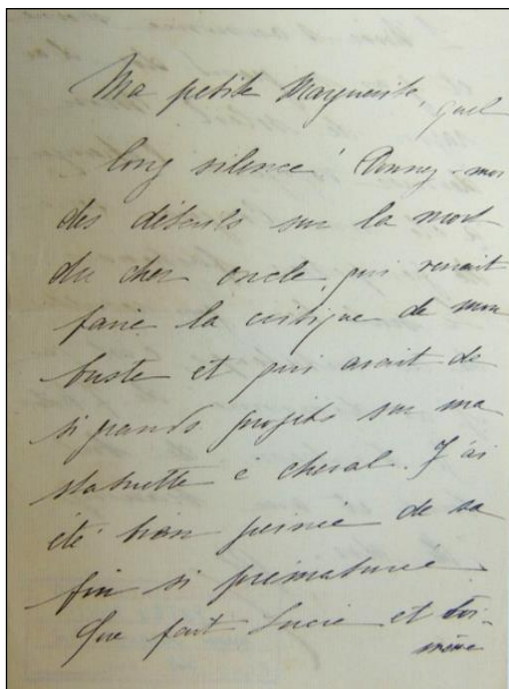 Ma petite Marguerite, quel
long silence! Donnez-moi
des détails sur la mort
du cher oncle, qui venait
faire la critique de mon
buste et qui avait de
si grands projets sur ma
statuette à cheval. J'ai
été bien peinée de sa
fin si prématurée
Que fait Lucie et toi-
même